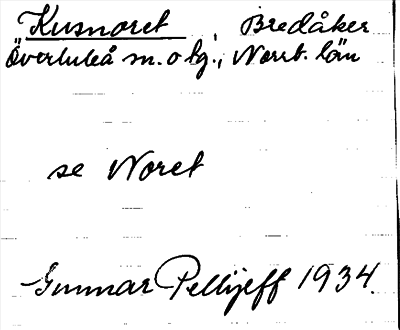 Kusnoret, Bredåker
Överluleå sn. o tg., Norrb. län
se Noret
Gunnar Pellijeff 1934.